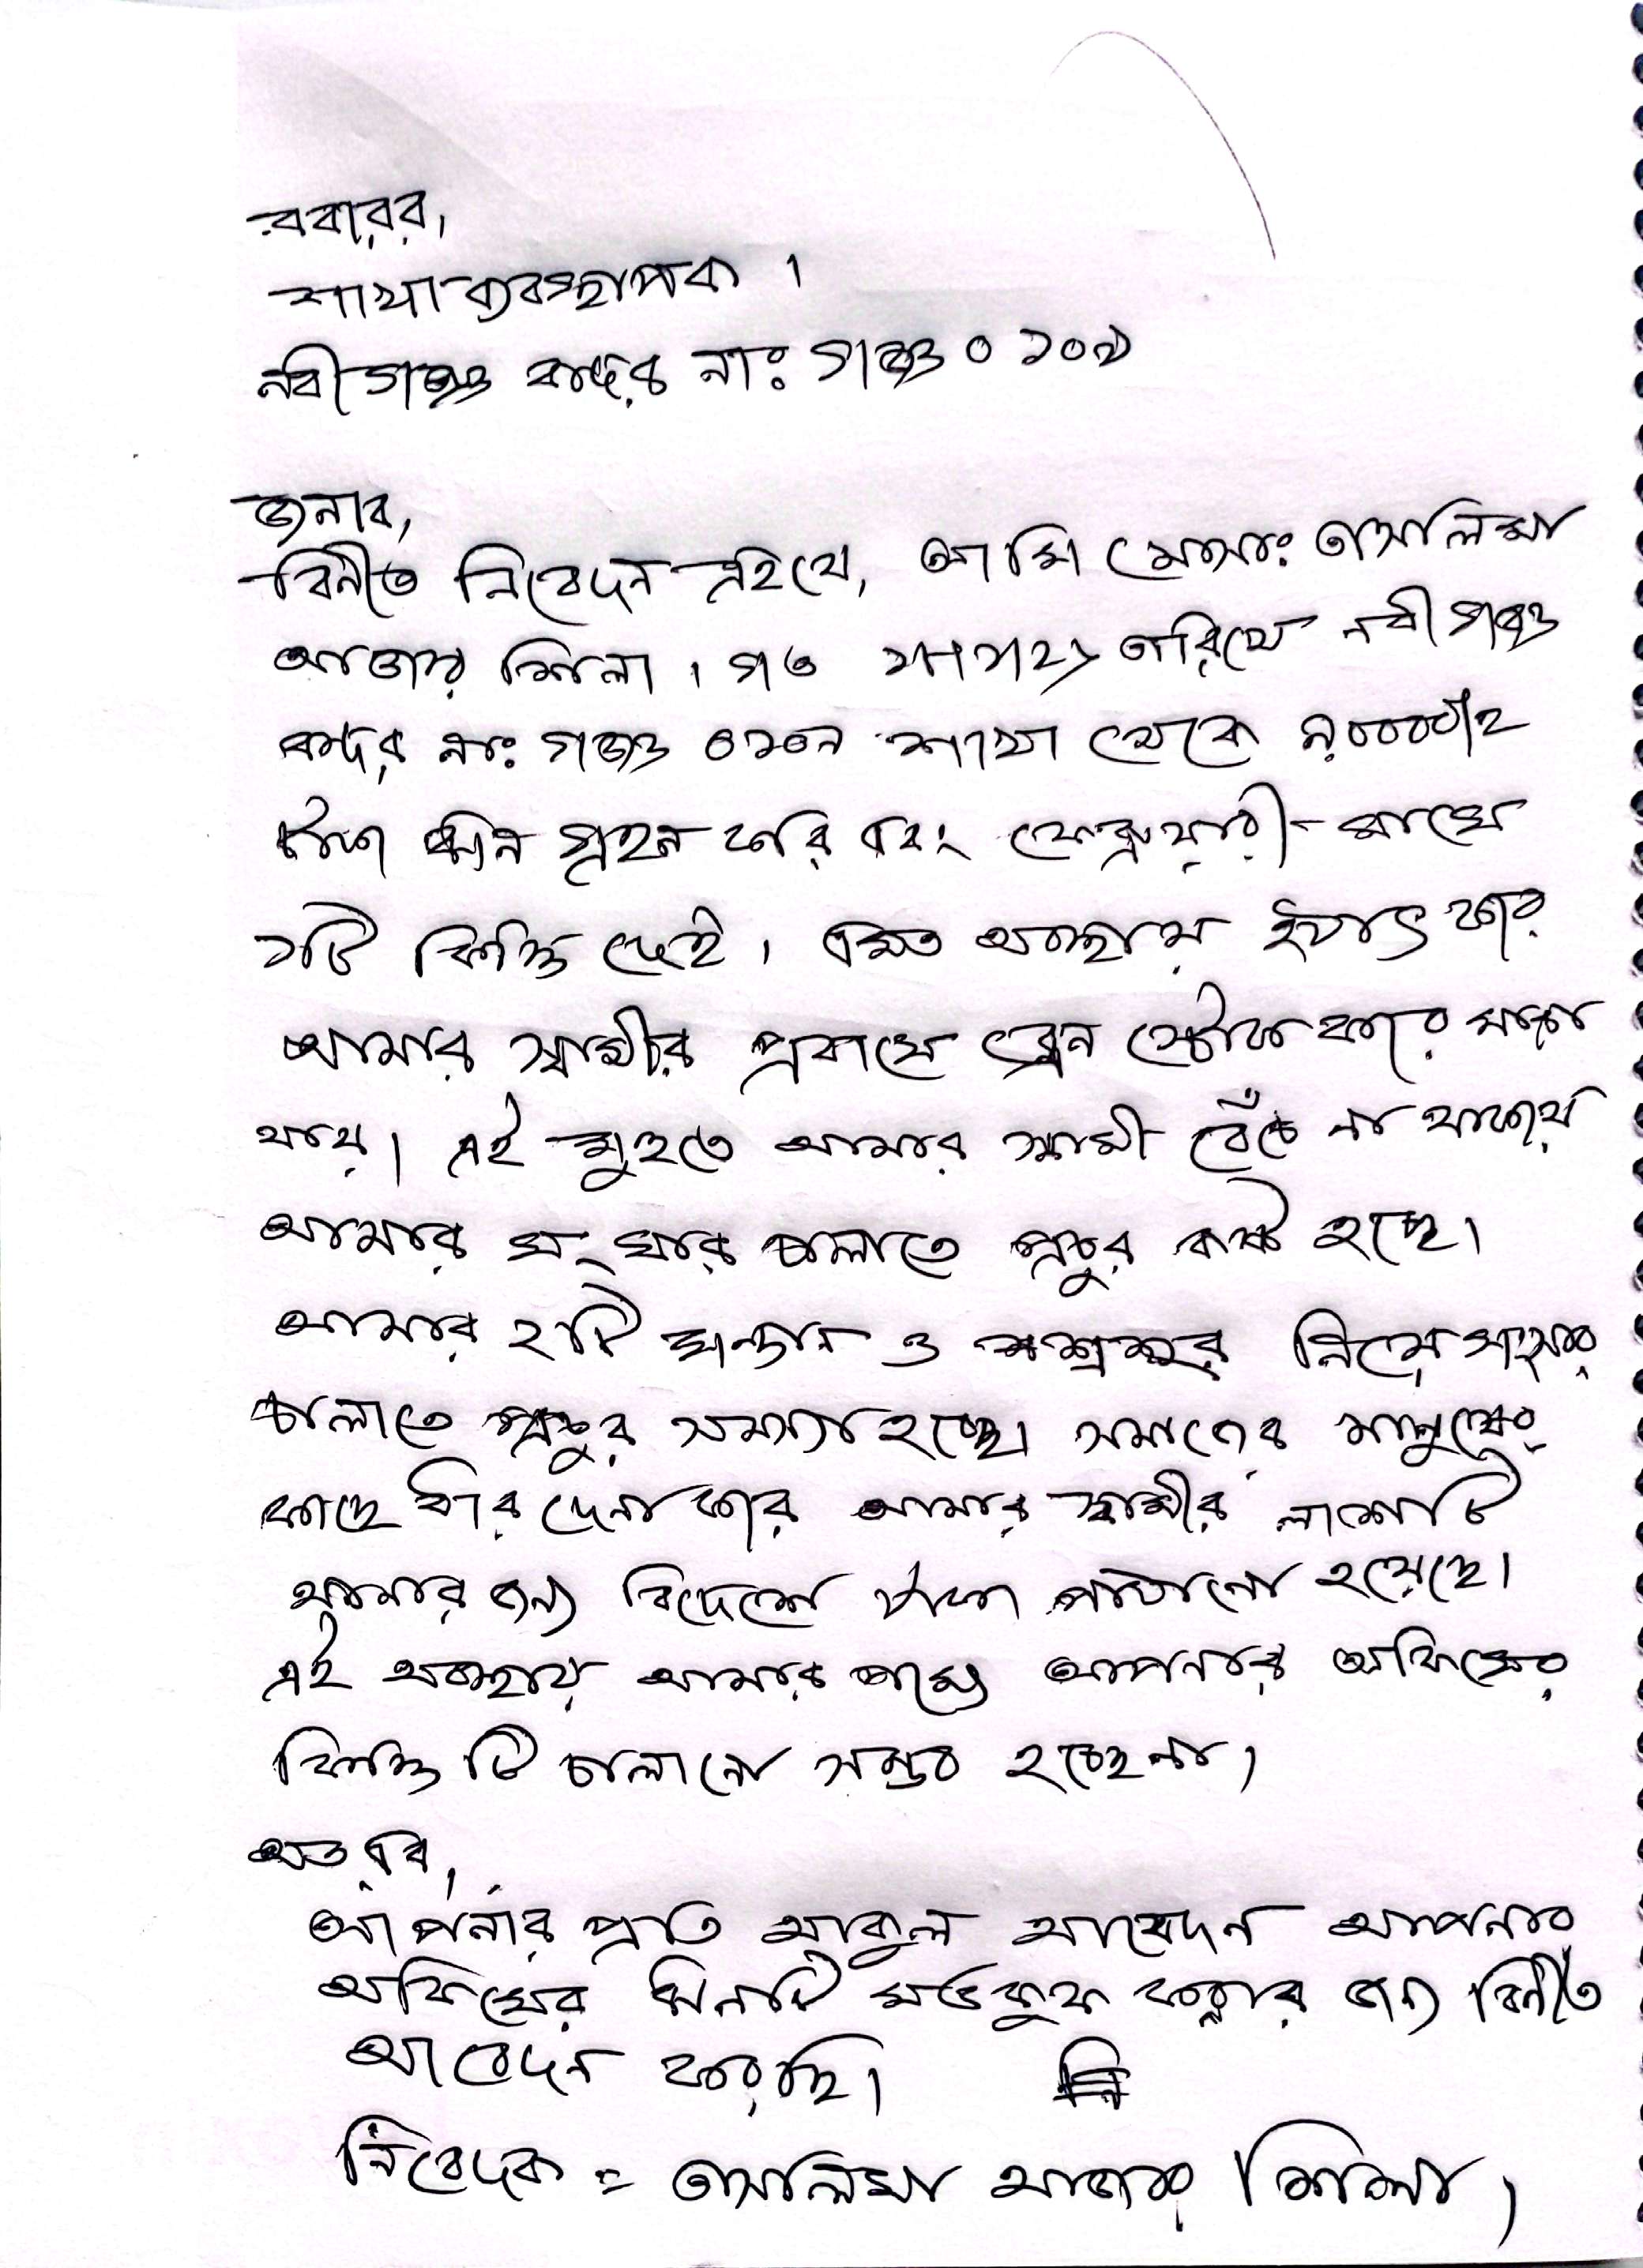 ববারর,
শাখা ব্যবস্থাপক ।
নবীগঞ্জ বন্দর নাঃ গঞ্জ ০১০৯
জনাব,
বিনীত নিবেদন এইযে, আমি মোসাঃ তাসলিমা
আক্তার শিলা । গত তারিখে নবীগঞ্জ
বন্দর নাঃ গঞ্জ ০১০৯ শাখা থেকে
টাকা লোন গ্রহন করি এবং ফেব্রুয়ারী মাসে
১টি কিস্তি দেই । এমত অবস্থায় হঠাৎ করে
আমার স্বামীর প্রবাসে ব্রেন স্টোক করে মারা
যায় । এই মুহুতে আমার স্বামী বেঁচে না থাকায়
আমার সংসার চালাতে প্রচুর কষ্ট হচ্ছে ।
আমার ২টি সন্তান ও শশুর নিয়ে সংসার
চালাতে প্রচুর সমস্যা হচ্ছে । সমাজের মানুষের
কাছে ধার দেনা করে আমার স্বামীর লাশটি
আনার জন্য বিদেশে টাকা পাঠানো হয়েছে ।
এই অবস্থায় আমার পক্ষে আপনার অফিসের
কিস্তি টি চালানো সম্ভব হচ্ছেনা ।
অতএব,
আপনার প্রতি আকুল আবেদন আপনার
অফিসের লোনটি মওকুফ করার জন্য বিনীত
আবেদন করছি ।
নিবেদক = তাসলিমা আক্তার শিলা ।